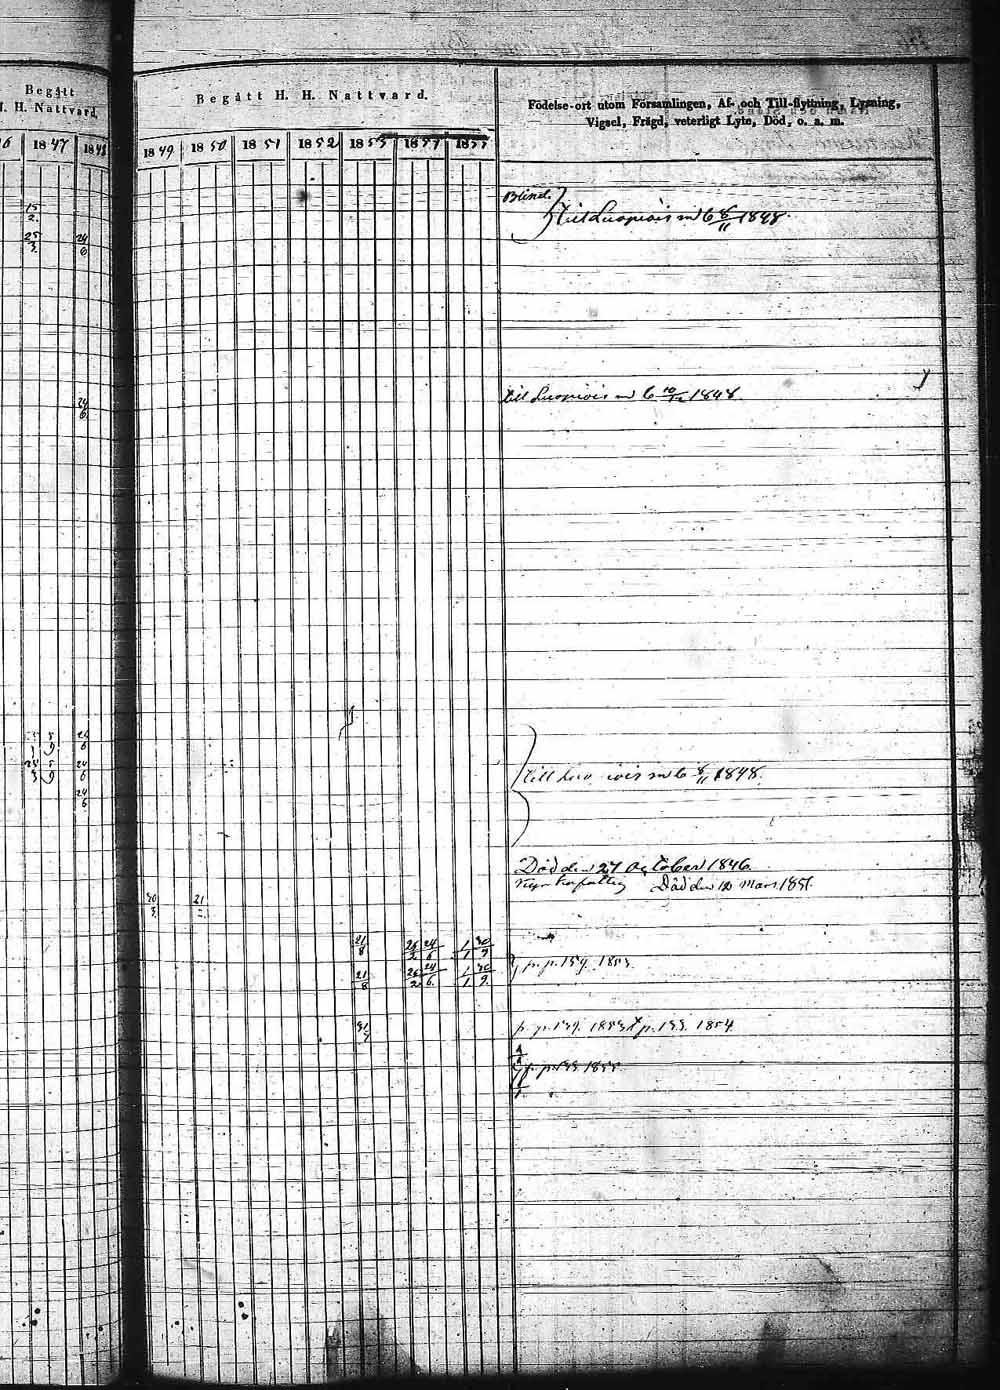 Begått
H. H. Nattvard.
6 1847 1848
15
2.
25 24
3. 6
24
6.
5 5 24
9 6
24 5 24
3 9 6
24
6
Begått H. H. Nattvard.
Födelse-ort utom Församlingen, Af- och Till-flyttning, Lysning,
Vigsel, Frägd, veterligt Lyte, Död, o. a. m.
1849 1850 1851 1852 1853 1854 1855
Blind.
till Luopiois 6 8/11 1848.
till Luopiois 6 10/12 1848
till Luo iois 6 8/11 1848.
Död den 27 October 1846.
Död den 12 Mars 1851.
30 21
3.
21 26 24 1 30
8 2 6 1 9
p. p. 159. 1853.
21 26 24 1 30
8 2 6. 1 9.
31
7
p. p. 139. 1853 p. 133. 1854
p. p. 133. 1855